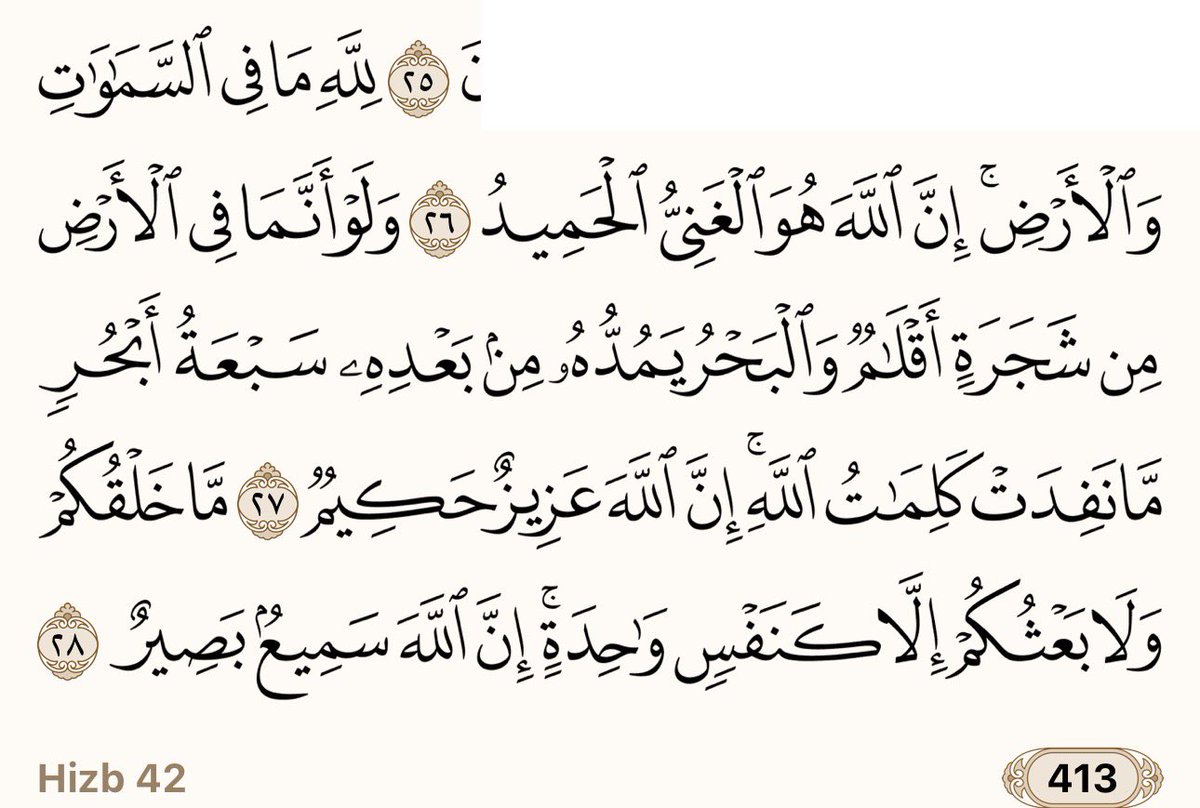 نَ ٢٥ لِلَّهِ مَا فِي ٱلسَّمَٰوَٰتِ
وَٱلْأَرْضِۚ إِنَّ ٱللَّهَ هُوَ ٱلْغَنِيُّ ٱلْحَمِيدُ ٢٦ وَلَوْ أَنَّمَا فِي ٱلْأَرْضِ
مِن شَجَرَةٍ أَقْلَٰمٌ وَٱلْبَحْرُ يَمُدُّهُۥ مِنۢ بَعْدِهِۦ سَبْعَةُ أَبْحُرٍ
مَّا نَفِدَتْ كَلِمَٰتُ ٱللَّهِۚ إِنَّ ٱللَّهَ عَزِيزٌ حَكِيمٌ ٢٧ مَّا خَلْقُكُمْ
وَلَا بَعْثُكُمْ إِلَّا كَنَفْسٍ وَٰحِدَةٍۚ إِنَّ ٱللَّهَ سَمِيعٌۢ بَصِيرٌ ٢٨
Hizb 42
413